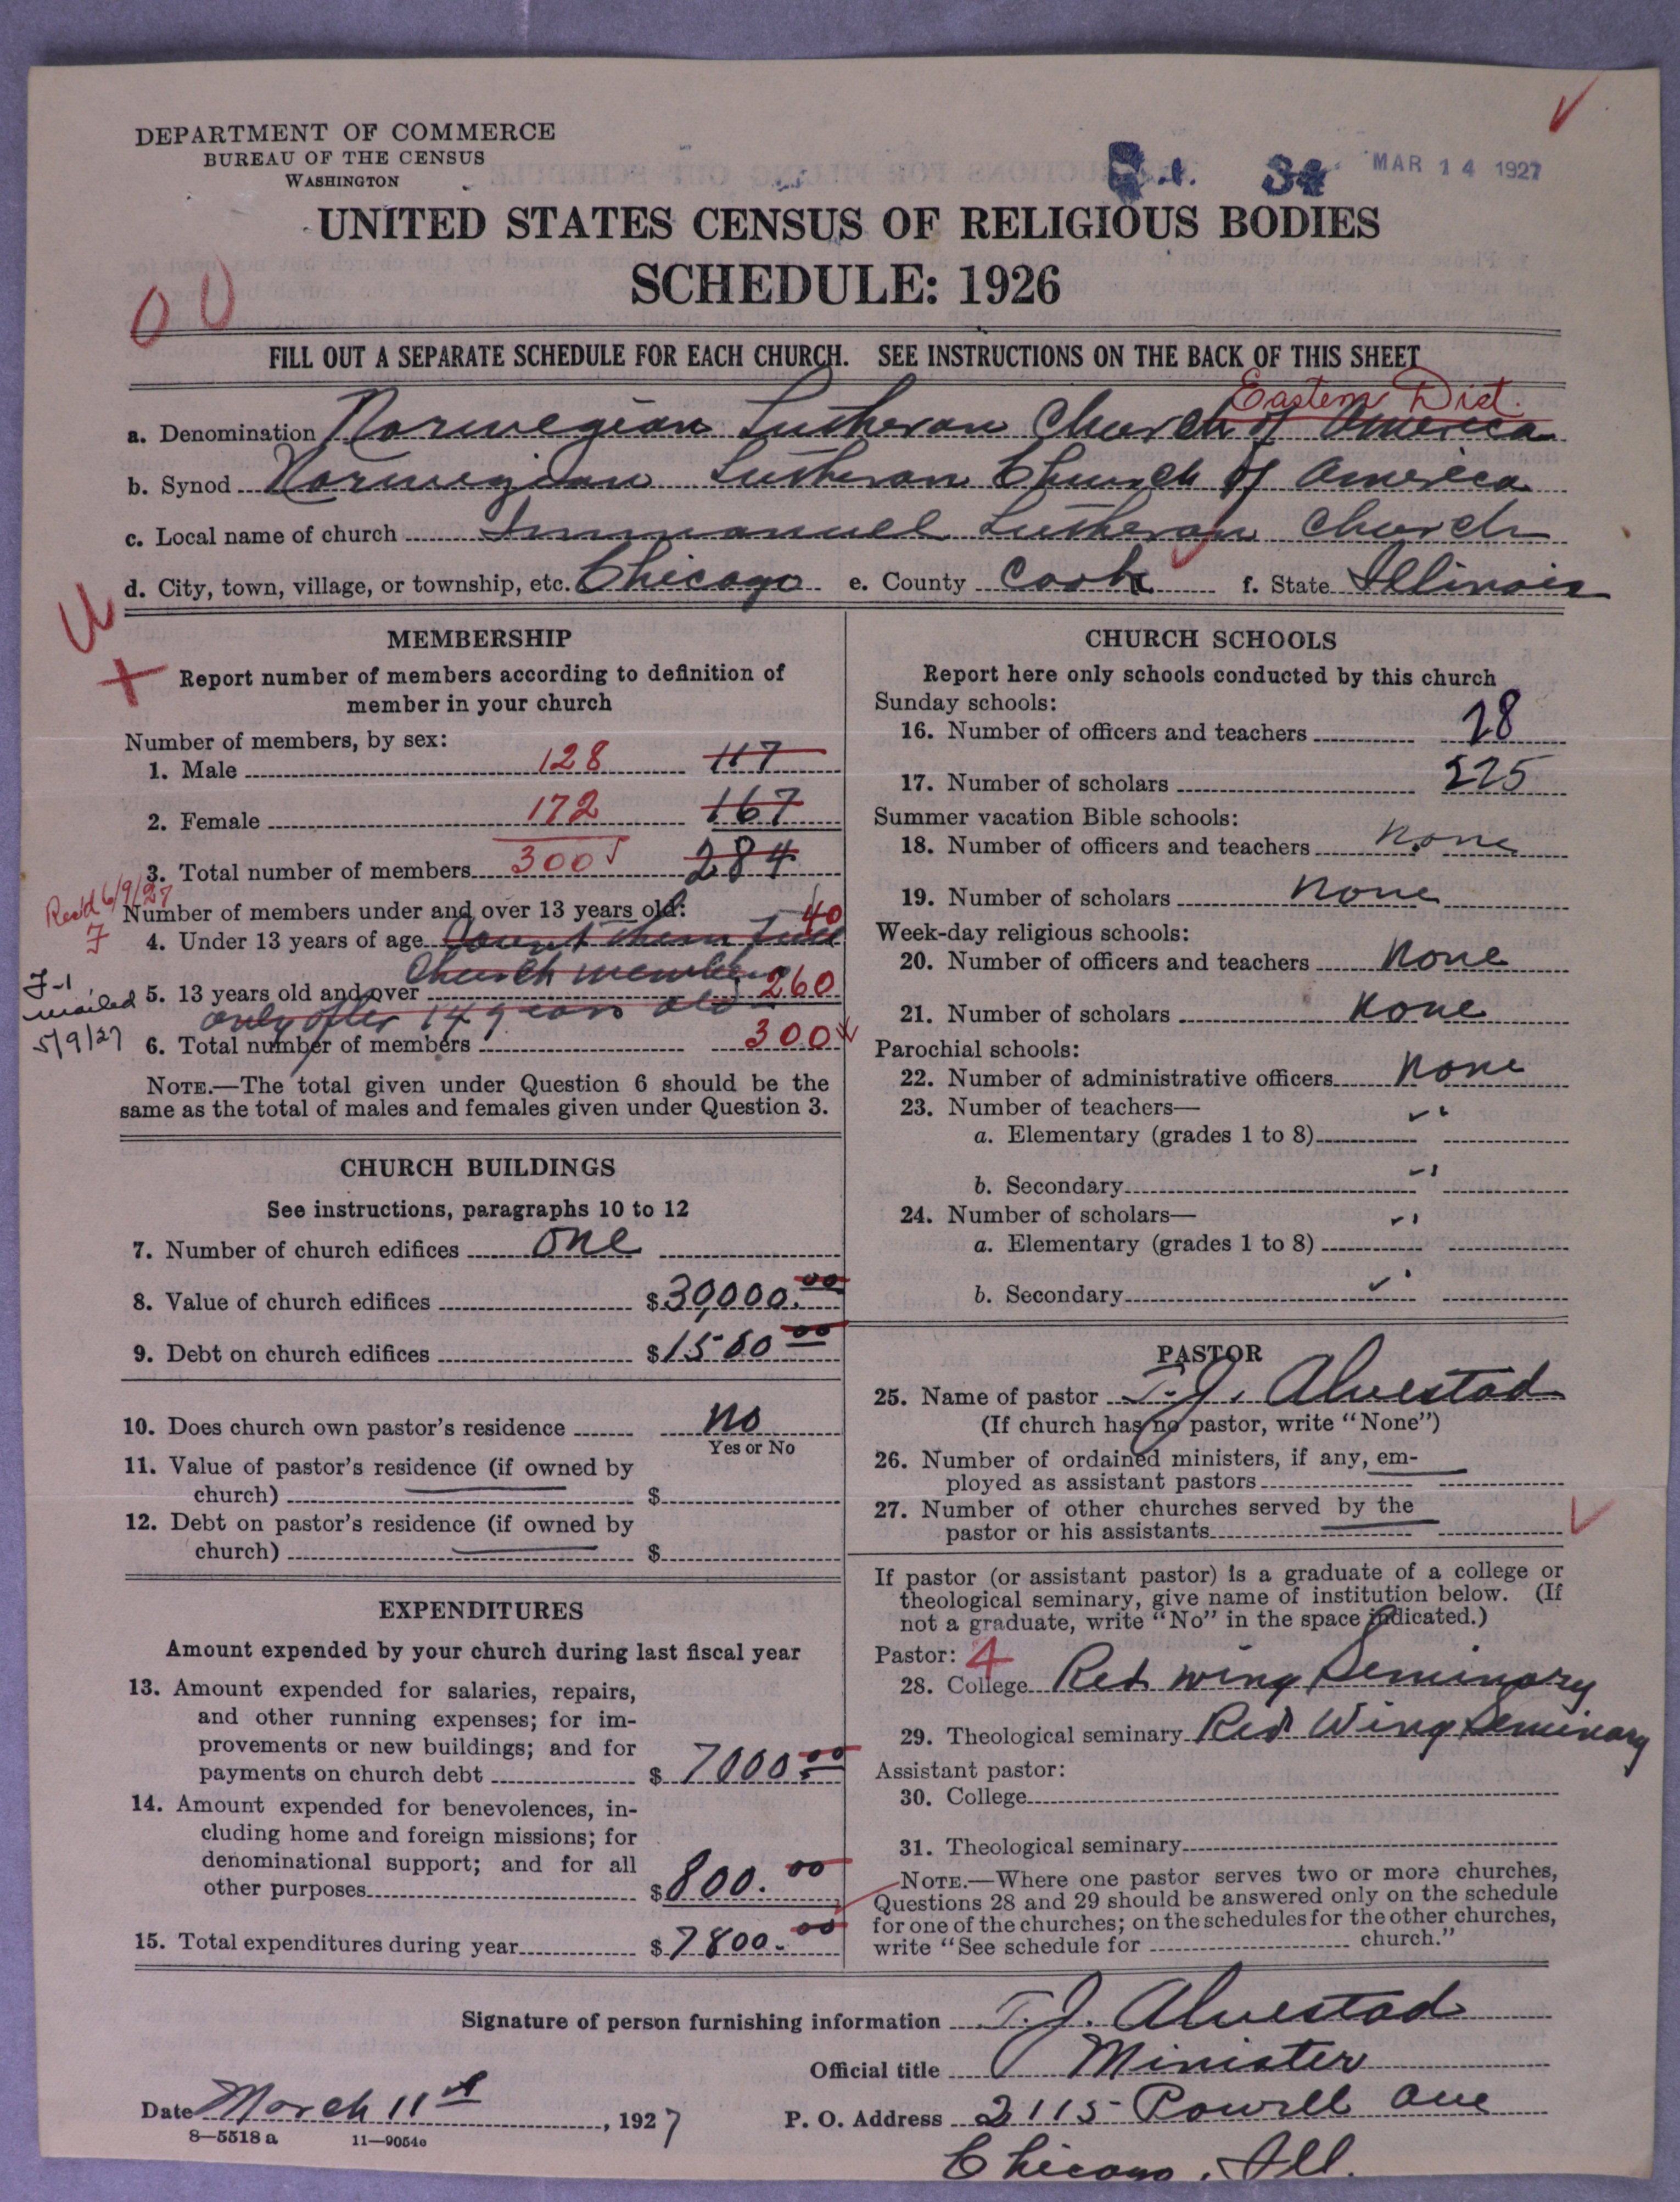 DEPARTMENT OF COMMERCE
BUREAU OF THE CENSUS
WASHINGTON
MAR 14 1927
UNITED STATES CENSUS OF RELIGIOUS BODIES
SCHEDULE: 1926
FILL OUT A SEPARATE SCHEDULE FOR EACH CHURCH. SEE INSTRUCTIONS ON THE BACK OF THIS SHEET
Eastern Dist.
a. Denomination Norwegian Lutheran Church of America
b. Synod Norwegian Lutheran Church of America
c. Local name of church Immanuel Lutheran Church
d. City, town, village, or township, etc. Chicago e. County Cook f. State Illinois
MEMBERSHIP
Report number of members according to definition of
member in your church
Number of members, by sex:
1. Male 128 117
2. Female 172 167
3. Total number of members 300 284
Rec'd 6/9/27
Number of members under and over 13 years old:
4. Under 13 years of age Count them full 40
church members
5. 13 years old and over 260
only after 14 years old
6. Total number of members 300
J-1
mailed
5/9/27
NOTE.—The total given under Question 6 should be the
same as the total of males and females given under Question 3.
CHURCH BUILDINGS
See instructions, paragraphs 10 to 12
7. Number of church edifices one
8. Value of church edifices $30,000.00
9. Debt on church edifices $1500 00
10. Does church own pastor's residence no
Yes or No
11. Value of pastor's residence (if owned by
church) $
12. Debt on pastor's residence (if owned by
church) $
EXPENDITURES
Amount expended by your church during last fiscal year
13. Amount expended for salaries, repairs,
and other running expenses; for im-
provements or new buildings; and for
payments on church debt $ 7000.00
14. Amount expended for benevolences, in-
cluding home and foreign missions; for
denominational support; and for all
other purposes $800.00
15. Total expenditures during year $7800.00
CHURCH SCHOOLS
Report here only schools conducted by this church
Sunday schools:
16. Number of officers and teachers 28
17. Number of scholars 225
Summer vacation Bible schools:
18. Number of officers and teachers none
19. Number of scholars none
Week-day religious schools:
20. Number of officers and teachers none
21. Number of scholars none
Parochial schools:
22. Number of administrative officers none
23. Number of teachers—
a. Elementary (grades 1 to 8)
b. Secondary
24. Number of scholars—
a. Elementary (grades 1 to 8)
b. Secondary
PASTOR
25. Name of pastor T. J. Alvestad
(If church has no pastor, write "None")
26. Number of ordained ministers, if any, em-
ployed as assistant pastors
27. Number of other churches served by the
pastor or his assistants
If pastor (or assistant pastor) is a graduate of a college or
theological seminary, give name of institution below. (If
not a graduate, write "No" in the space indicated.)
Pastor: 4
28. College Red Wing Seminary
29. Theological seminary Red Wing Seminary
Assistant pastor:
30. College
31. Theological seminary
NOTE.—Where one pastor serves two or more churches,
Questions 28 and 29 should be answered only on the schedule
for one of the churches; on the schedules for the other churches,
write "See schedule for church."
Signature of person furnishing information T. J. Alvestad
Official title Minister
Date March 11th, 1927 P. O. Address 2115 Powell Ave
8—5518 a 11—9054c
Chicago, Ill.